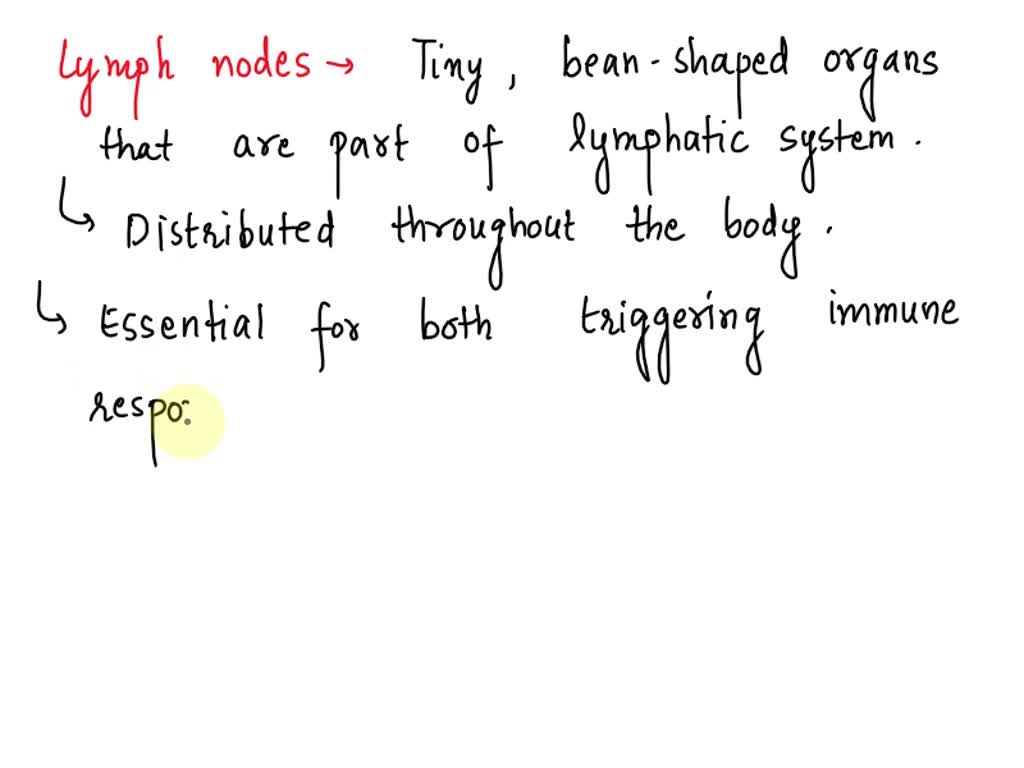 Lymph nodes → Tiny, bean-shaped organs
that are part of lymphatic system.
↳ Distributed throughout the body.
↳ Essential for both triggering immune
respo